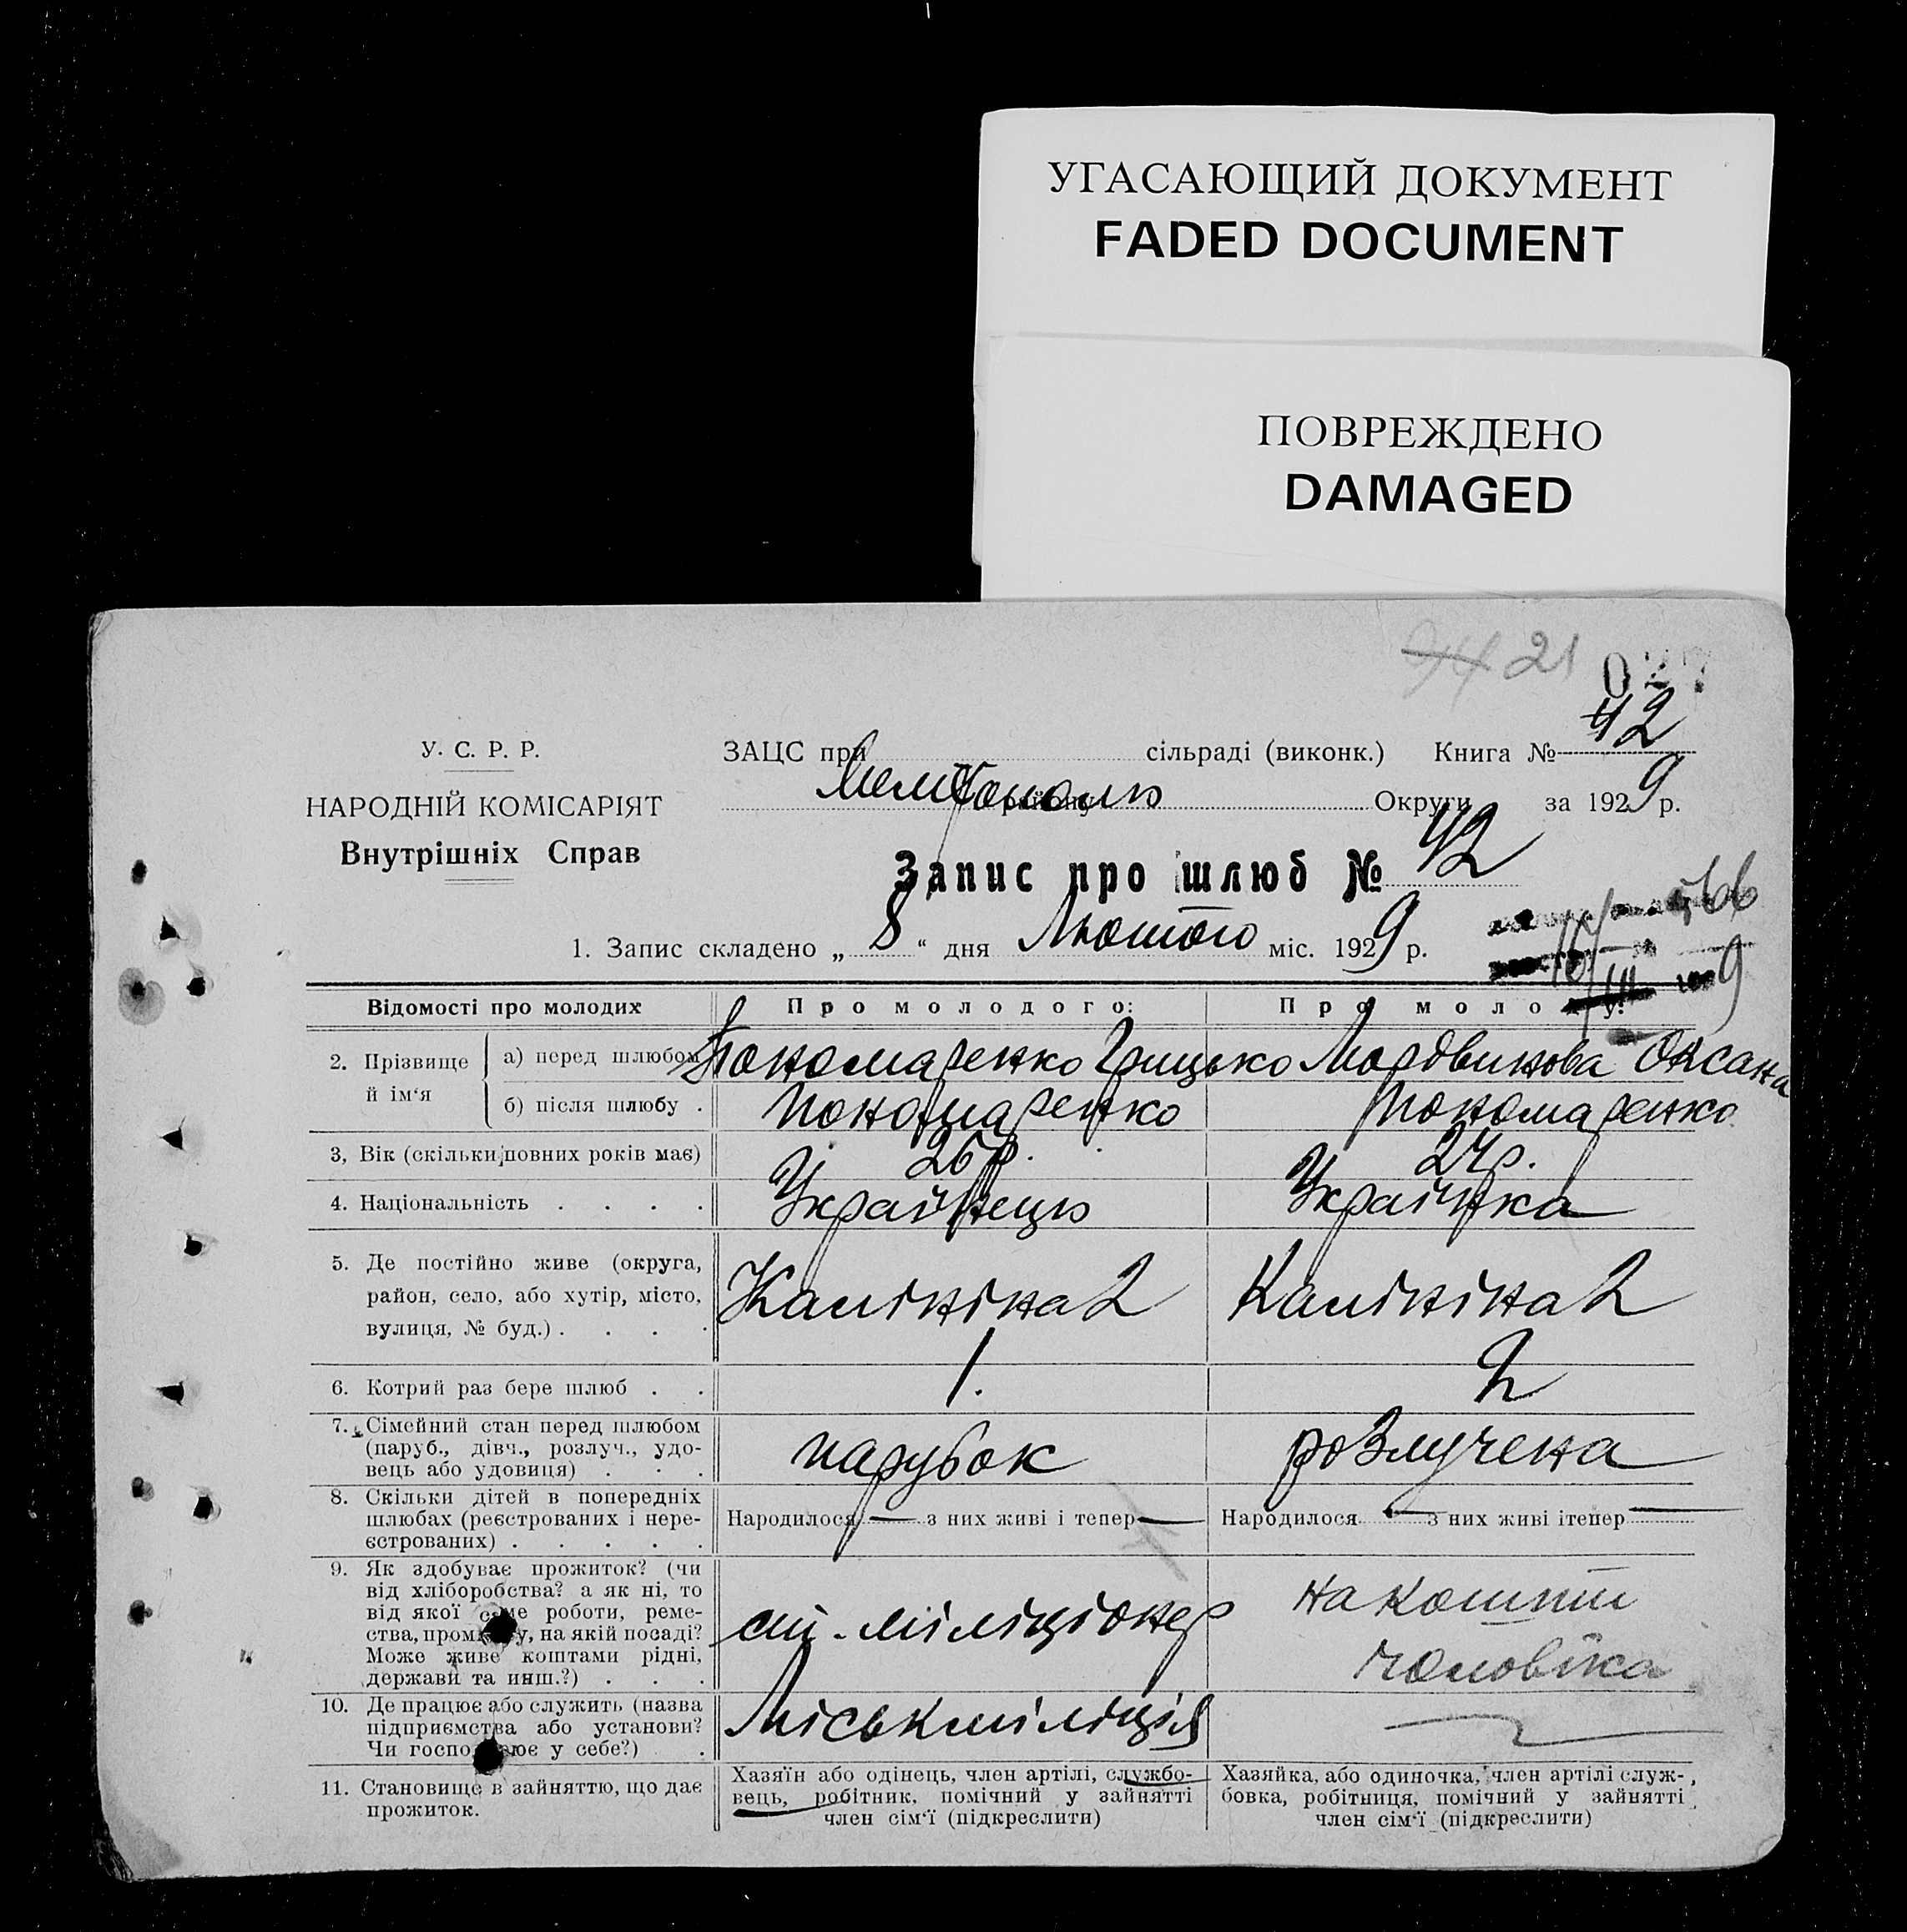 УГАСАЮЩИЙ ДОКУМЕНТ
FADED DOCUMENT
ПОВРЕЖДЕНО
DAMAGED
21
У. С. Р. Р.
НАРОДНІЙ КОМІСАРІЯТ
Внутрішніх Справ
ЗАЦС при сільраді (виконк.) Книга № 42
Мелітополь району Округи за 1929 р.
Запис про шлюб № 42
1. Запис складено „ 8 “ дня Лютого міс. 1929 р.
Відомості про молодих
Про молодого:
Про молоду:
2. Прізвище й ім‘я
а) перед шлюбом Пономаренко Грицько Мордвинова Оксана
б) після шлюбу . Пономаренко Пономаренко
3, Вік (скільки повних років має) 26 р. 24 р.
4. Національність . . . . Українець Українка
5. Де постійно живе (округа,
район, село, або хутір, місто,
вулиця, № буд.) . . . .
Калініна 2 Калініна 2
6. Котрий раз бере шлюб . . 1. 2
7. Сімейний стан перед шлюбом
(паруб., дівч., розлуч., удо-
вець або удовиця) . . .
парубок розлучена
8. Скільки дітей в попередніх
шлюбах (реєстрованих і нере-
єстрованих) . . . . .
Народилося — з них живі і тепер —
Народилося — з них живі ітепер —
9. Як здобуває прожиток? (чи
від хліборобства? а як ні, то
від якої саме роботи, реме-
ства, промислу, на якій посаді?
Може живе коштами рідні,
держави та инш.?) . . .
ст. міліціонер
на кошти
чоловіка
10. Де працює або служить (назва
підприємства або установи?
Чи господарює у себе?) .
Міськміліція —
11. Становище в зайняттю, що дає
прожиток.
Хазяїн або одінець, член артілі, службо-
вець, робітник, помічний у зайнятті
член сім‘ї (підкреслити)
Хазяйка, або одиночка, член артілі служ-
бовка, робітниця, помічний у зайнятті
член сім‘ї (підкреслити)